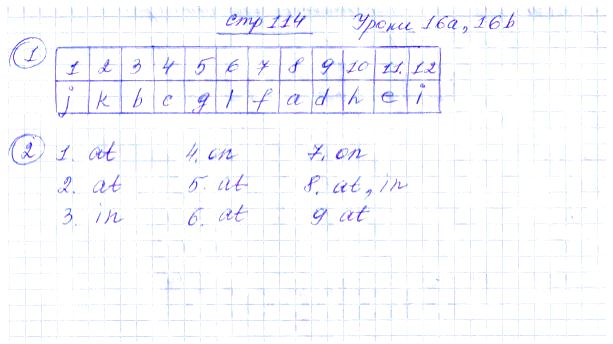 стр 114 Уроки 16a, 16b
1
1 2 3 4 5 6 7 8 9 10 11. 12
j k b c g l f a d h e i
2 1. at 4. on 7. on
2. at 5. at 8. at, in
3. in 6. at 9 at